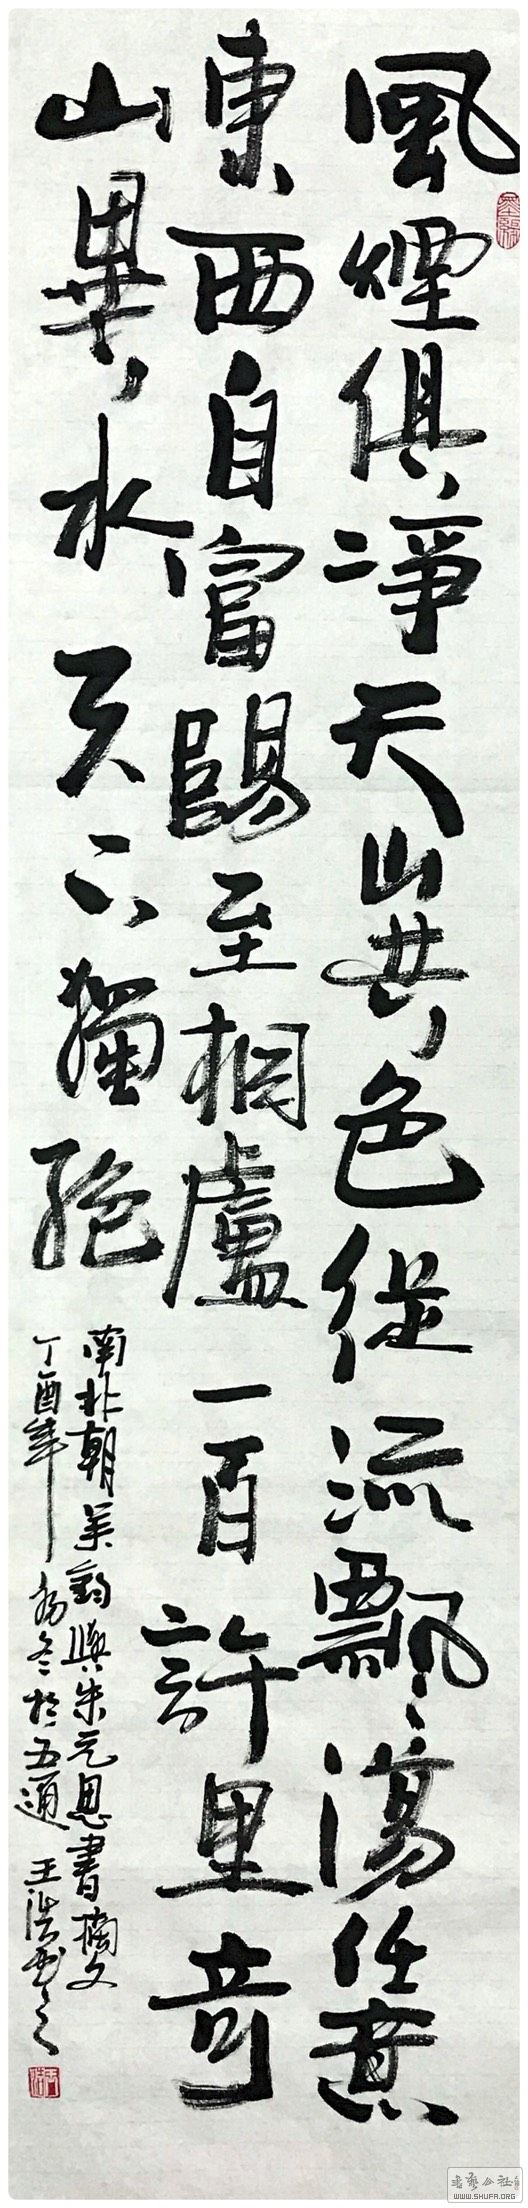 風煙俱淨天山共色從流飄蕩任意
東西自富陽至桐廬一百許里奇
山異水天下獨絕
南北朝吴均與朱元思書摘文
丁酉年初冬於五通 王浩书之
書藝公社
WWW.SHUFA.ORG